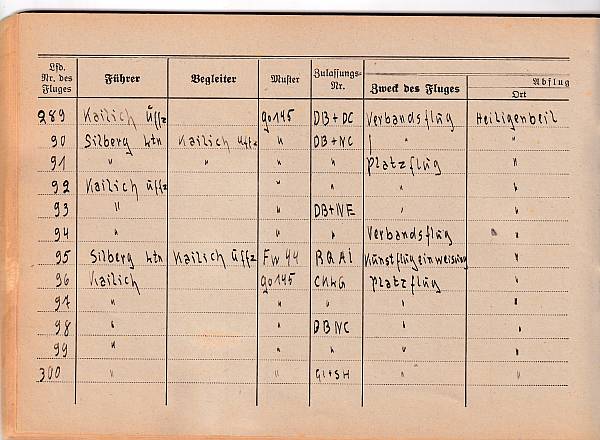 Lfd. Nr. des Fluges Führer Begleiter Muster Zulassungs-Nr. Zweck des Fluges Abflug Ort
289 Kailich Uffz go 145 DB+DC Verbandsflug Heiligenbeil
90 Silberg Ltn Kailich Uffz " DB+NC " "
91 " " " " Platzflug "
92 Kailich Uffz " " " "
93 " " DB+NE " "
94 " " " Verbandsflug "
95 Silberg Ltn Kailich Uffz Fw 44 Kunstflugeinweisung "
96 Kailich go 145 Platzflug "
97 " " " " "
98 " " DBNC " "
99 " " " " "
300 " " GI+SH " "